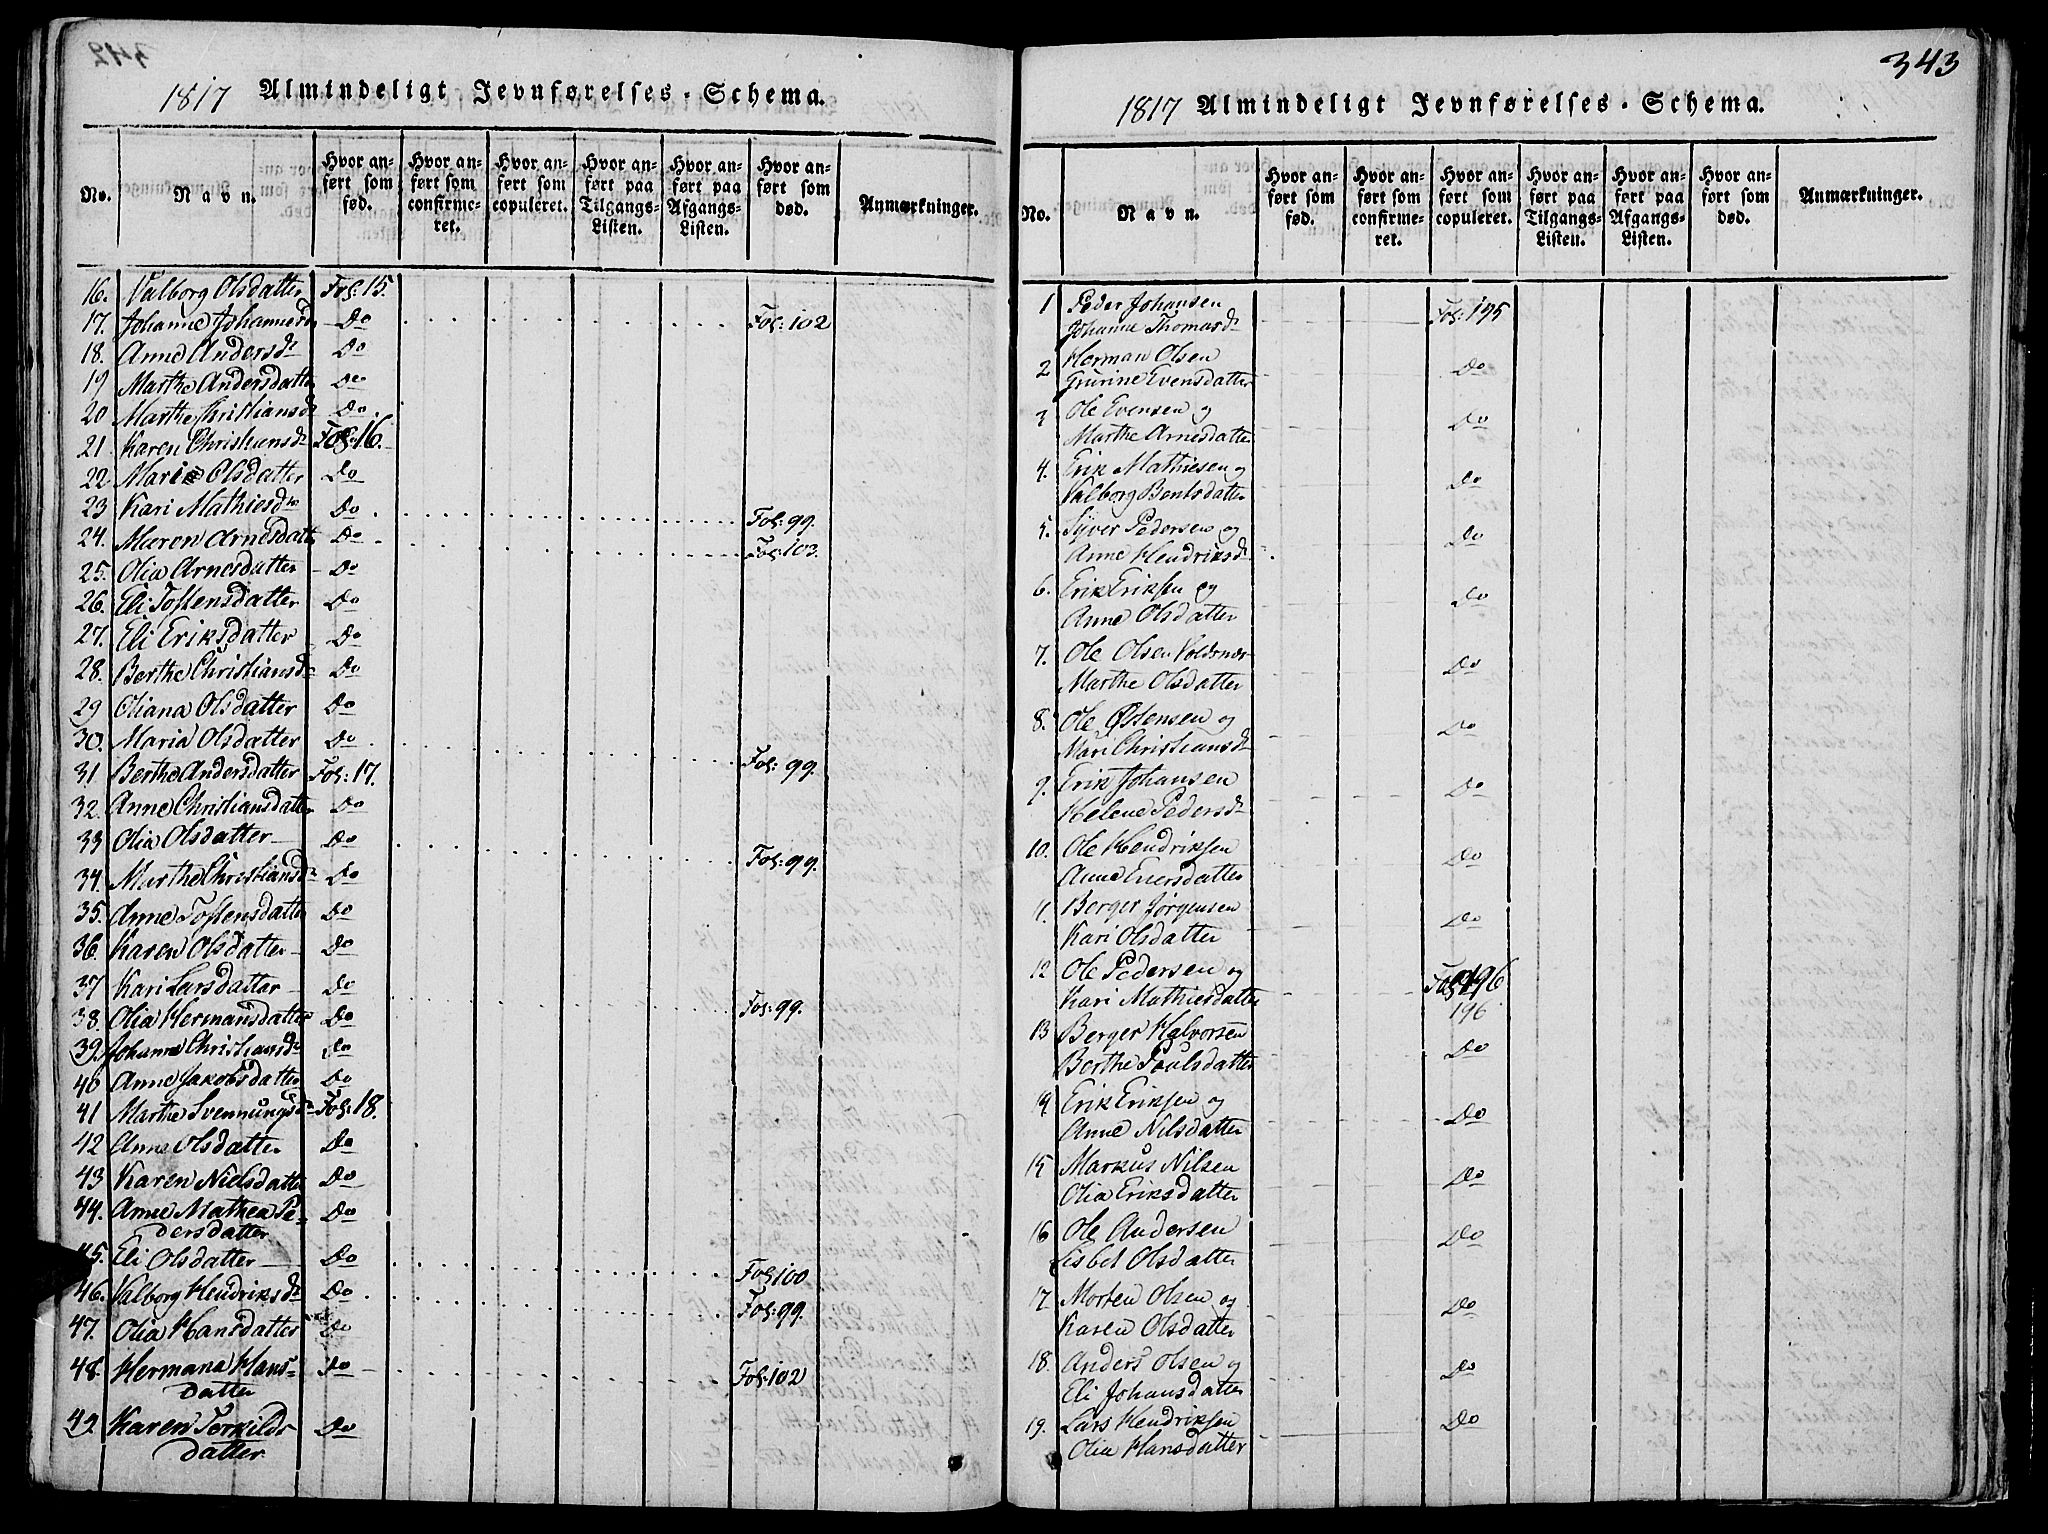 1817 Almindeligt Jevnførelses-Schema.
No. Navn. Hvor anført som fød. Hvor anført som confirmeret. Hvor anført som copuleret. Hvor anført paa Tilgangs-Listen. Hvor anført paa Afgangs-Listen. Hvor anført som død. Anmærkninger.
16. Valborg Olsdatter Fol: 15.
17. Johanne Johannesd Do Fol: 102
18. Anne Andersdr Do
19 Marthe Andersdatter Do
20 Marthe Christiansdr Do.
21 Karen Christiansdr Fol: 16.
22. Marie Olsdatter Do
23 Kari Mathiesdr Do Fol: 99.
24. Maren Arnesdatt Do Fol: 103.
25. Olia Arnesdatter Do
26. Eli Tostensdatter Do
27. Eli Eriksdatter Do
28. Berthe Christiansdr Do
29 Oliana Olsdatter Do
30. Maria Olsdatter Do Fol: 99.
31 Berthe Andersdatter Fol: 17.
32. Anne Christiansdatter Do
33 Olia Olsdatter Do Fol: 99.
34. Marthe Christiansdr Do
35. Anne Tostensdatter Do
36. Karen Olsdatter Do
37 Kari Larsdatter Do Fol: 99.
38. Olia Hermansdatter Do
39. Johanne Christiansdr Do
40 Anne Jakobsdatter Do
41 Marthe Svennungsdr Fol: 18.
42 Anne Olsdatter Do
43 Karen Nielsdatter Do
44. Anne Mathea Pe-
dersdatter Do
45. Eli Olsdatter Do Fol: 100
46. Valborg Hendriksdr Do Fol: 99.
47. Olia Hansdatter Do
48. Hermana Hans-
datter Do Fol: 102
49. Karen Torkilds
datter Do
343
1817 Almindeligt Jevnførelses-Schema.
No. Navn. Hvor anført som fød. Hvor anført som confirmeret. Hvor anført som copuleret. Hvor anført paa Tilgangs-Listen. Hvor anført paa Afgangs-Listen. Hvor anført som død. Anmærkninger.
1 Peder Johansen
Johanne Thomasdr Fol: 195
2 Herman Olsen
Gurine Evensdatter Do
3 Ole Evensen og
Marthe Arnesdatter Do
4. Erik Mathiesen og
Valborg Bentsdatter Do
5. Syver Pedersen og
Anne Hendriksdr Do
6. Erik Eriksen og
Anne Olsdatter Do
7. Ole Olsen
Marthe Olsdatter Do
8. Ole Østensen og
Mari Christiansdr Do
9. Erik Johansen
Helene Pedersdr Do
10. Ole Hendriksen
Anne Eversdatter Do
11. Berger Jørgensen
Kari Olsdatter Do
12 Ole Pedersen og
Kari Mathiesdatter Fol: 196
196
13 Berger Halvorsen
Berthe Poulsdatter Do
14 Erik Eriksen og
Anne Nilsdatter Do
15 Markus Nilsen
Olia Eriksdatter Do
16 Ole Andersen
Lisbet Olsdatter Do
17 Morten Olsen og
Karen Olsdatter Do
18. Anders Olsen og
Eli Johansdatter Do
19. Lars Hendriksen
Olia Hansdatter Do